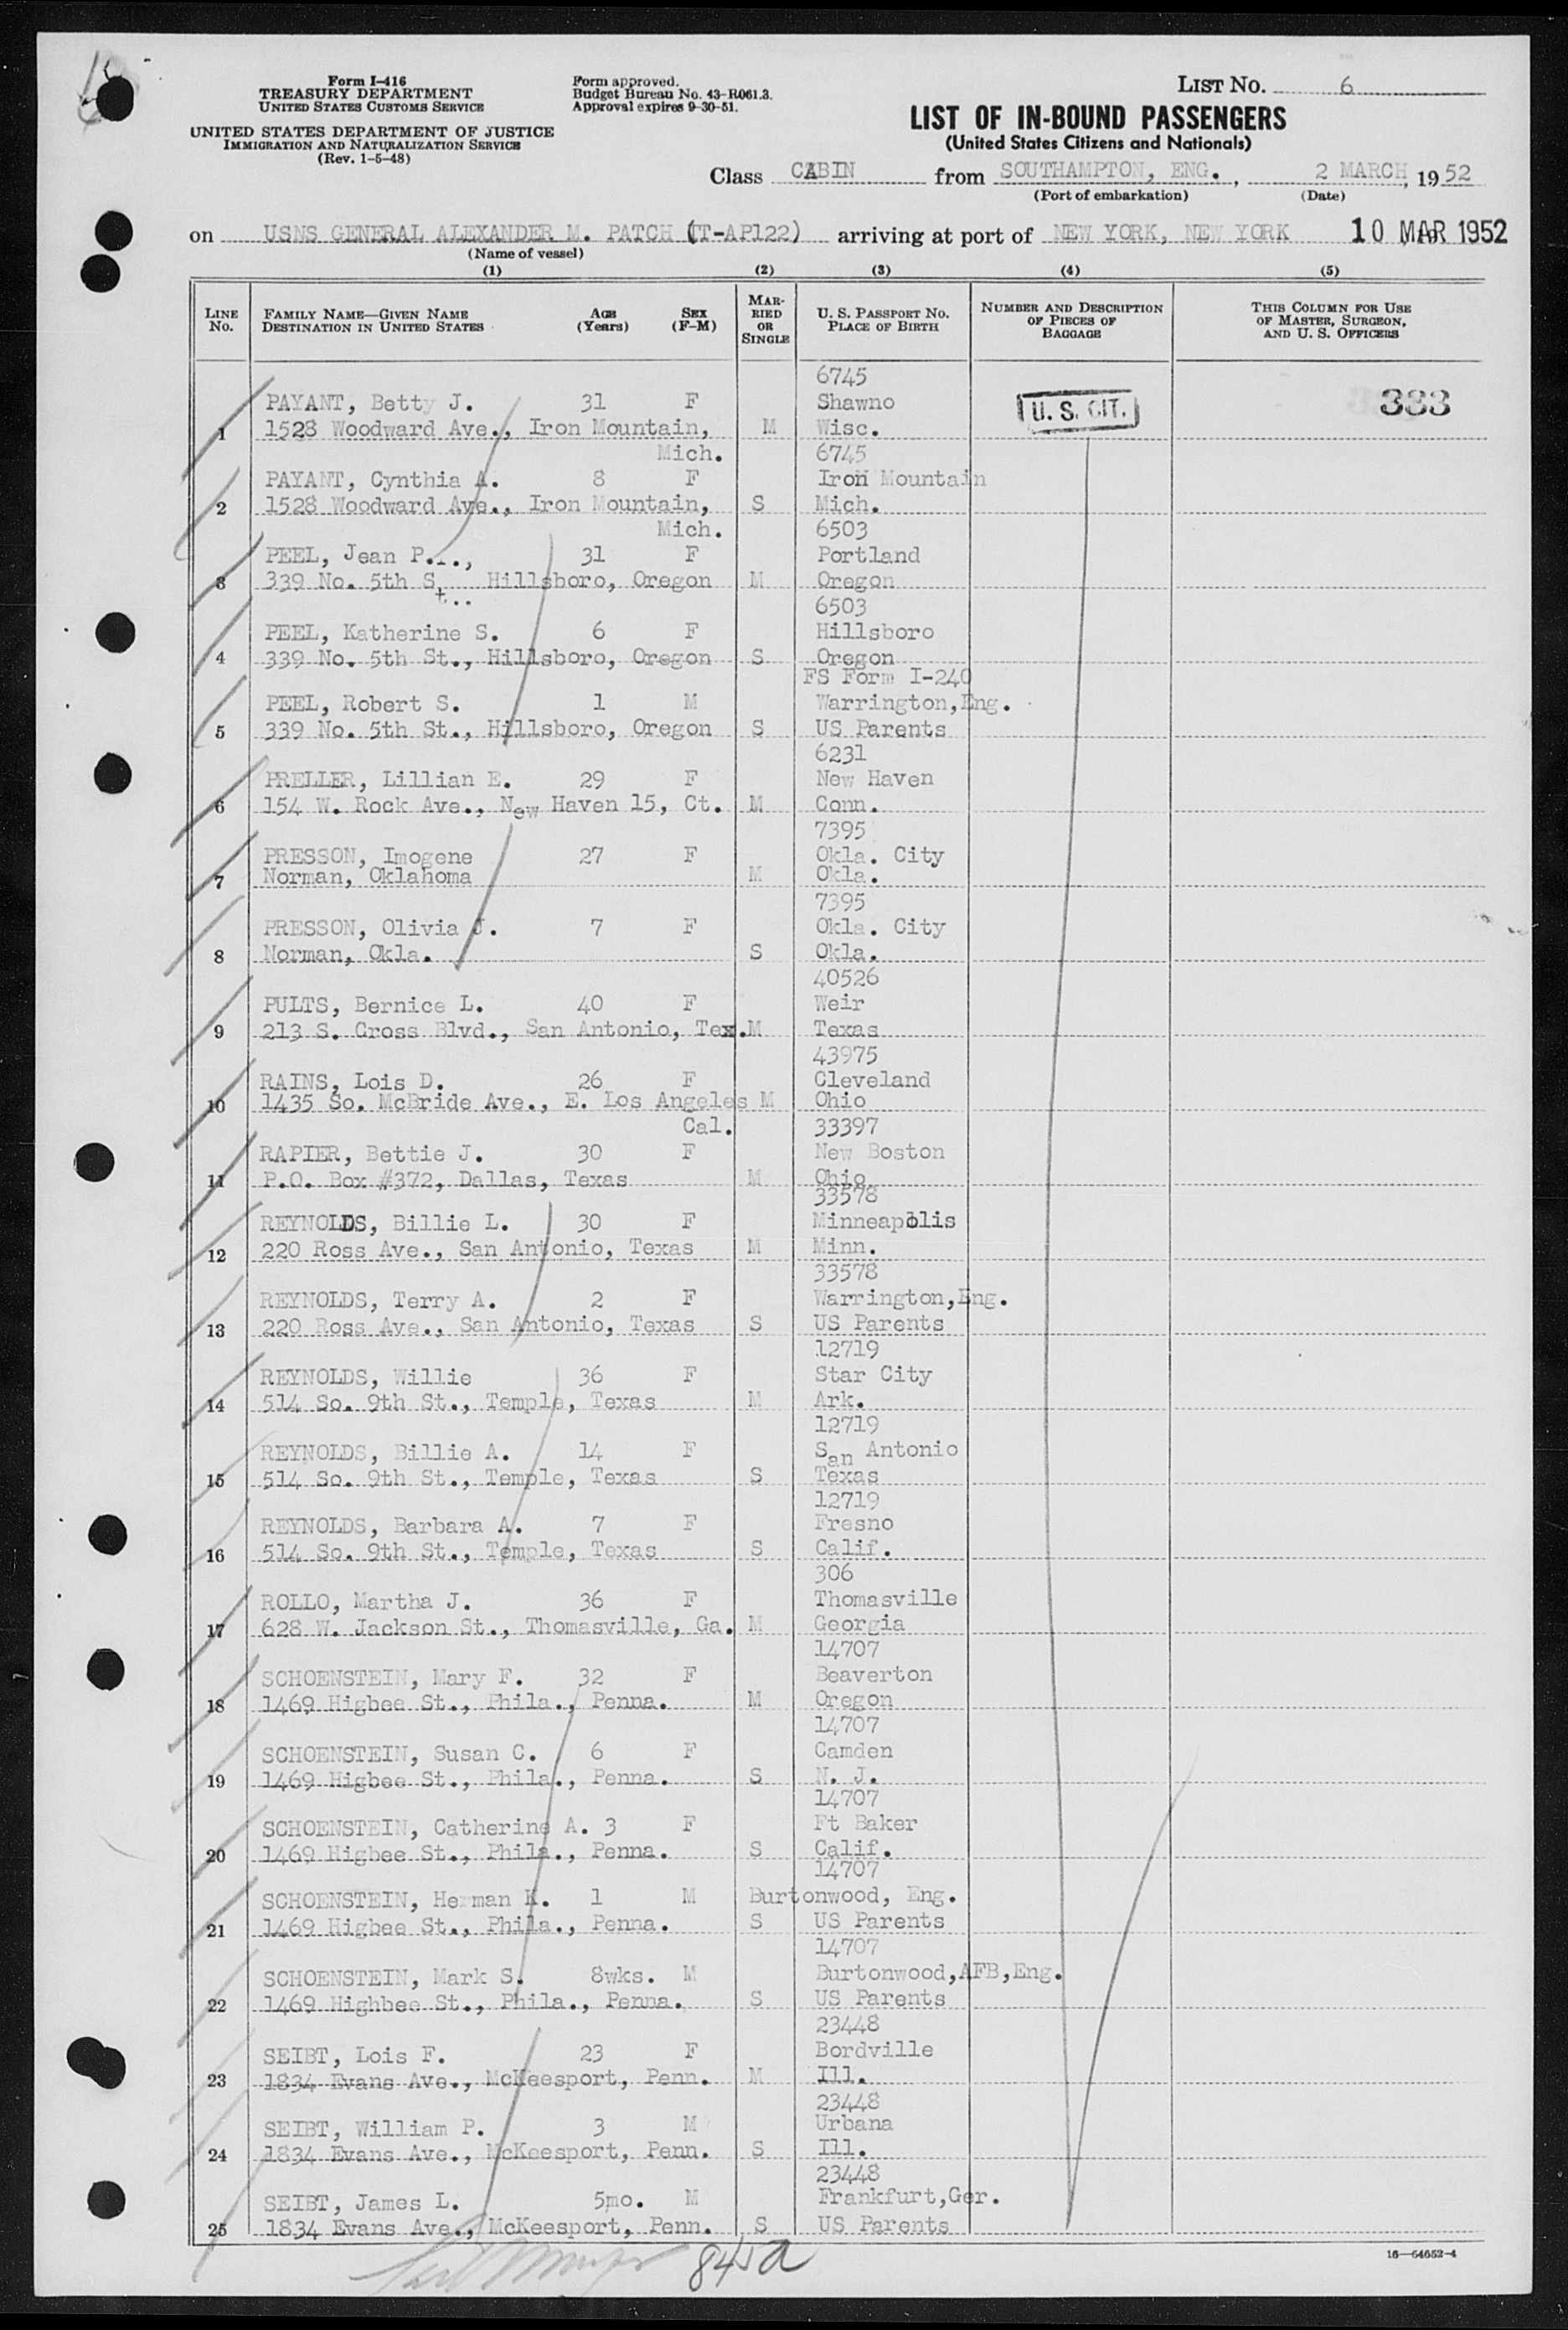 Form I-416
TREASURY DEPARTMENT
UNITED STATES CUSTOMS SERVICE
UNITED STATES DEPARTMENT OF JUSTICE
IMMIGRATION AND NATURALIZATION SERVICE
(Rev. 1-5-48)
Form approved.
Budget Bureau No. 43-R061.3.
Approval expires 9-30-51.
LIST No. 6
LIST OF IN-BOUND PASSENGERS
(United States Citizens and Nationals)
Class CABIN from SOUTHAMPTON, ENG., 2 MARCH, 1952
(Port of embarkation) (Date)
on USNS GENERAL ALEXANDER M. PATCH (T-AP122) arriving at port of NEW YORK, NEW YORK 10 MAR 1952
(Name of vessel)
(1) (2) (3) (4) (5)
LINE No. FAMILY NAME—GIVEN NAME DESTINATION IN UNITED STATES AGE (Years) SEX (F-M) MARRIED OR SINGLE U. S. PASSPORT No. PLACE OF BIRTH NUMBER AND DESCRIPTION OF PIECES OF BAGGAGE THIS COLUMN FOR USE OF MASTER, SURGEON, AND U. S. OFFICERS
6745
PAYANT, Betty J. 31 F Shawno U. S. CIT. 333
1 1528 Woodward Ave., Iron Mountain, M Wisc.
Mich. 6745
PAYANT, Cynthia A. 8 F Iron Mountain
2 1528 Woodward Ave., Iron Mountain, S Mich.
Mich. 6503
PEEL, Jean P..., 31 F Portland
3 339 No. 5th St.. Hillsboro, Oregon M Oregon
6503
PEEL, Katherine S. 6 F Hillsboro
4 339 No. 5th St., Hillsboro, Oregon S Oregon
FS Form I-240
PEEL, Robert S. 1 M Warrington,Eng.
5 339 No. 5th St., Hillsboro, Oregon S US Parents
6231
PRELLER, Lillian E. 29 F New Haven
6 154 W. Rock Ave., New Haven 15, Ct. M Conn.
7395
PRESSON, Imogene 27 F Okla. City
7 Norman, Oklahoma M Okla.
7395
PRESSON, Olivia J. 7 F Okla. City
8 Norman, Okla. S Okla.
40526
PULTS, Bernice L. 40 F Weir
9 213 S. Cross Blvd., San Antonio, Tex. M Texas
43975
RAINS, Lois D. 26 F Cleveland
10 1435 So. McBride Ave., E. Los Angeles M Ohio
Cal. 33397
RAPIER, Bettie J. 30 F New Boston
11 P.O. Box #372, Dallas, Texas M Ohio
33578
REYNOLDS, Billie L. 30 F Minneapolis
12 220 Ross Ave., San Antonio, Texas M Minn.
33578
REYNOLDS, Terry A. 2 F Warrington,Eng.
13 220 Ross Ave., San Antonio, Texas S US Parents
12719
REYNOLDS, Willie 36 F Star City
14 514 So. 9th St., Temple, Texas M Ark.
12719
REYNOLDS, Billie A. 14 F San Antonio
15 514 So. 9th St., Temple, Texas S Texas
12719
REYNOLDS, Barbara A. 7 F Fresno
16 514 So. 9th St., Temple, Texas S Calif.
306
ROLLO, Martha J. 36 F Thomasville
17 628 W. Jackson St., Thomasville, Ga. M Georgia
14707
SCHOENSTEIN, Mary F. 32 F Beaverton
18 1469 Higbee St., Phila., Penna. M Oregon
14707
SCHOENSTEIN, Susan C. 6 F Camden
19 1469 Higbee St., Phila., Penna. S N. J.
14707
SCHOENSTEIN, Catherine A. 3 F Ft Baker
20 1469 Higbee St., Phila., Penna. S Calif.
14707
SCHOENSTEIN, Herman K. 1 M Burtonwood, Eng.
21 1469 Higbee St., Phila., Penna. S US Parents
14707
SCHOENSTEIN, Mark S. 8wks. M Burtonwood,AFB,Eng.
22 1469 Highbee St., Phila., Penna. S US Parents
23448
SEIBT, Lois F. 23 F Bordville
23 1834 Evans Ave., McKeesport, Penn. M Ill.
23448
SEIBT, William P. 3 M Urbana
24 1834 Evans Ave., McKeesport, Penn. S Ill.
23448
SEIBT, James L. 5mo. M Frankfurt,Ger.
25 1834 Evans Ave., McKeesport, Penn. S US Parents
16—54652-4